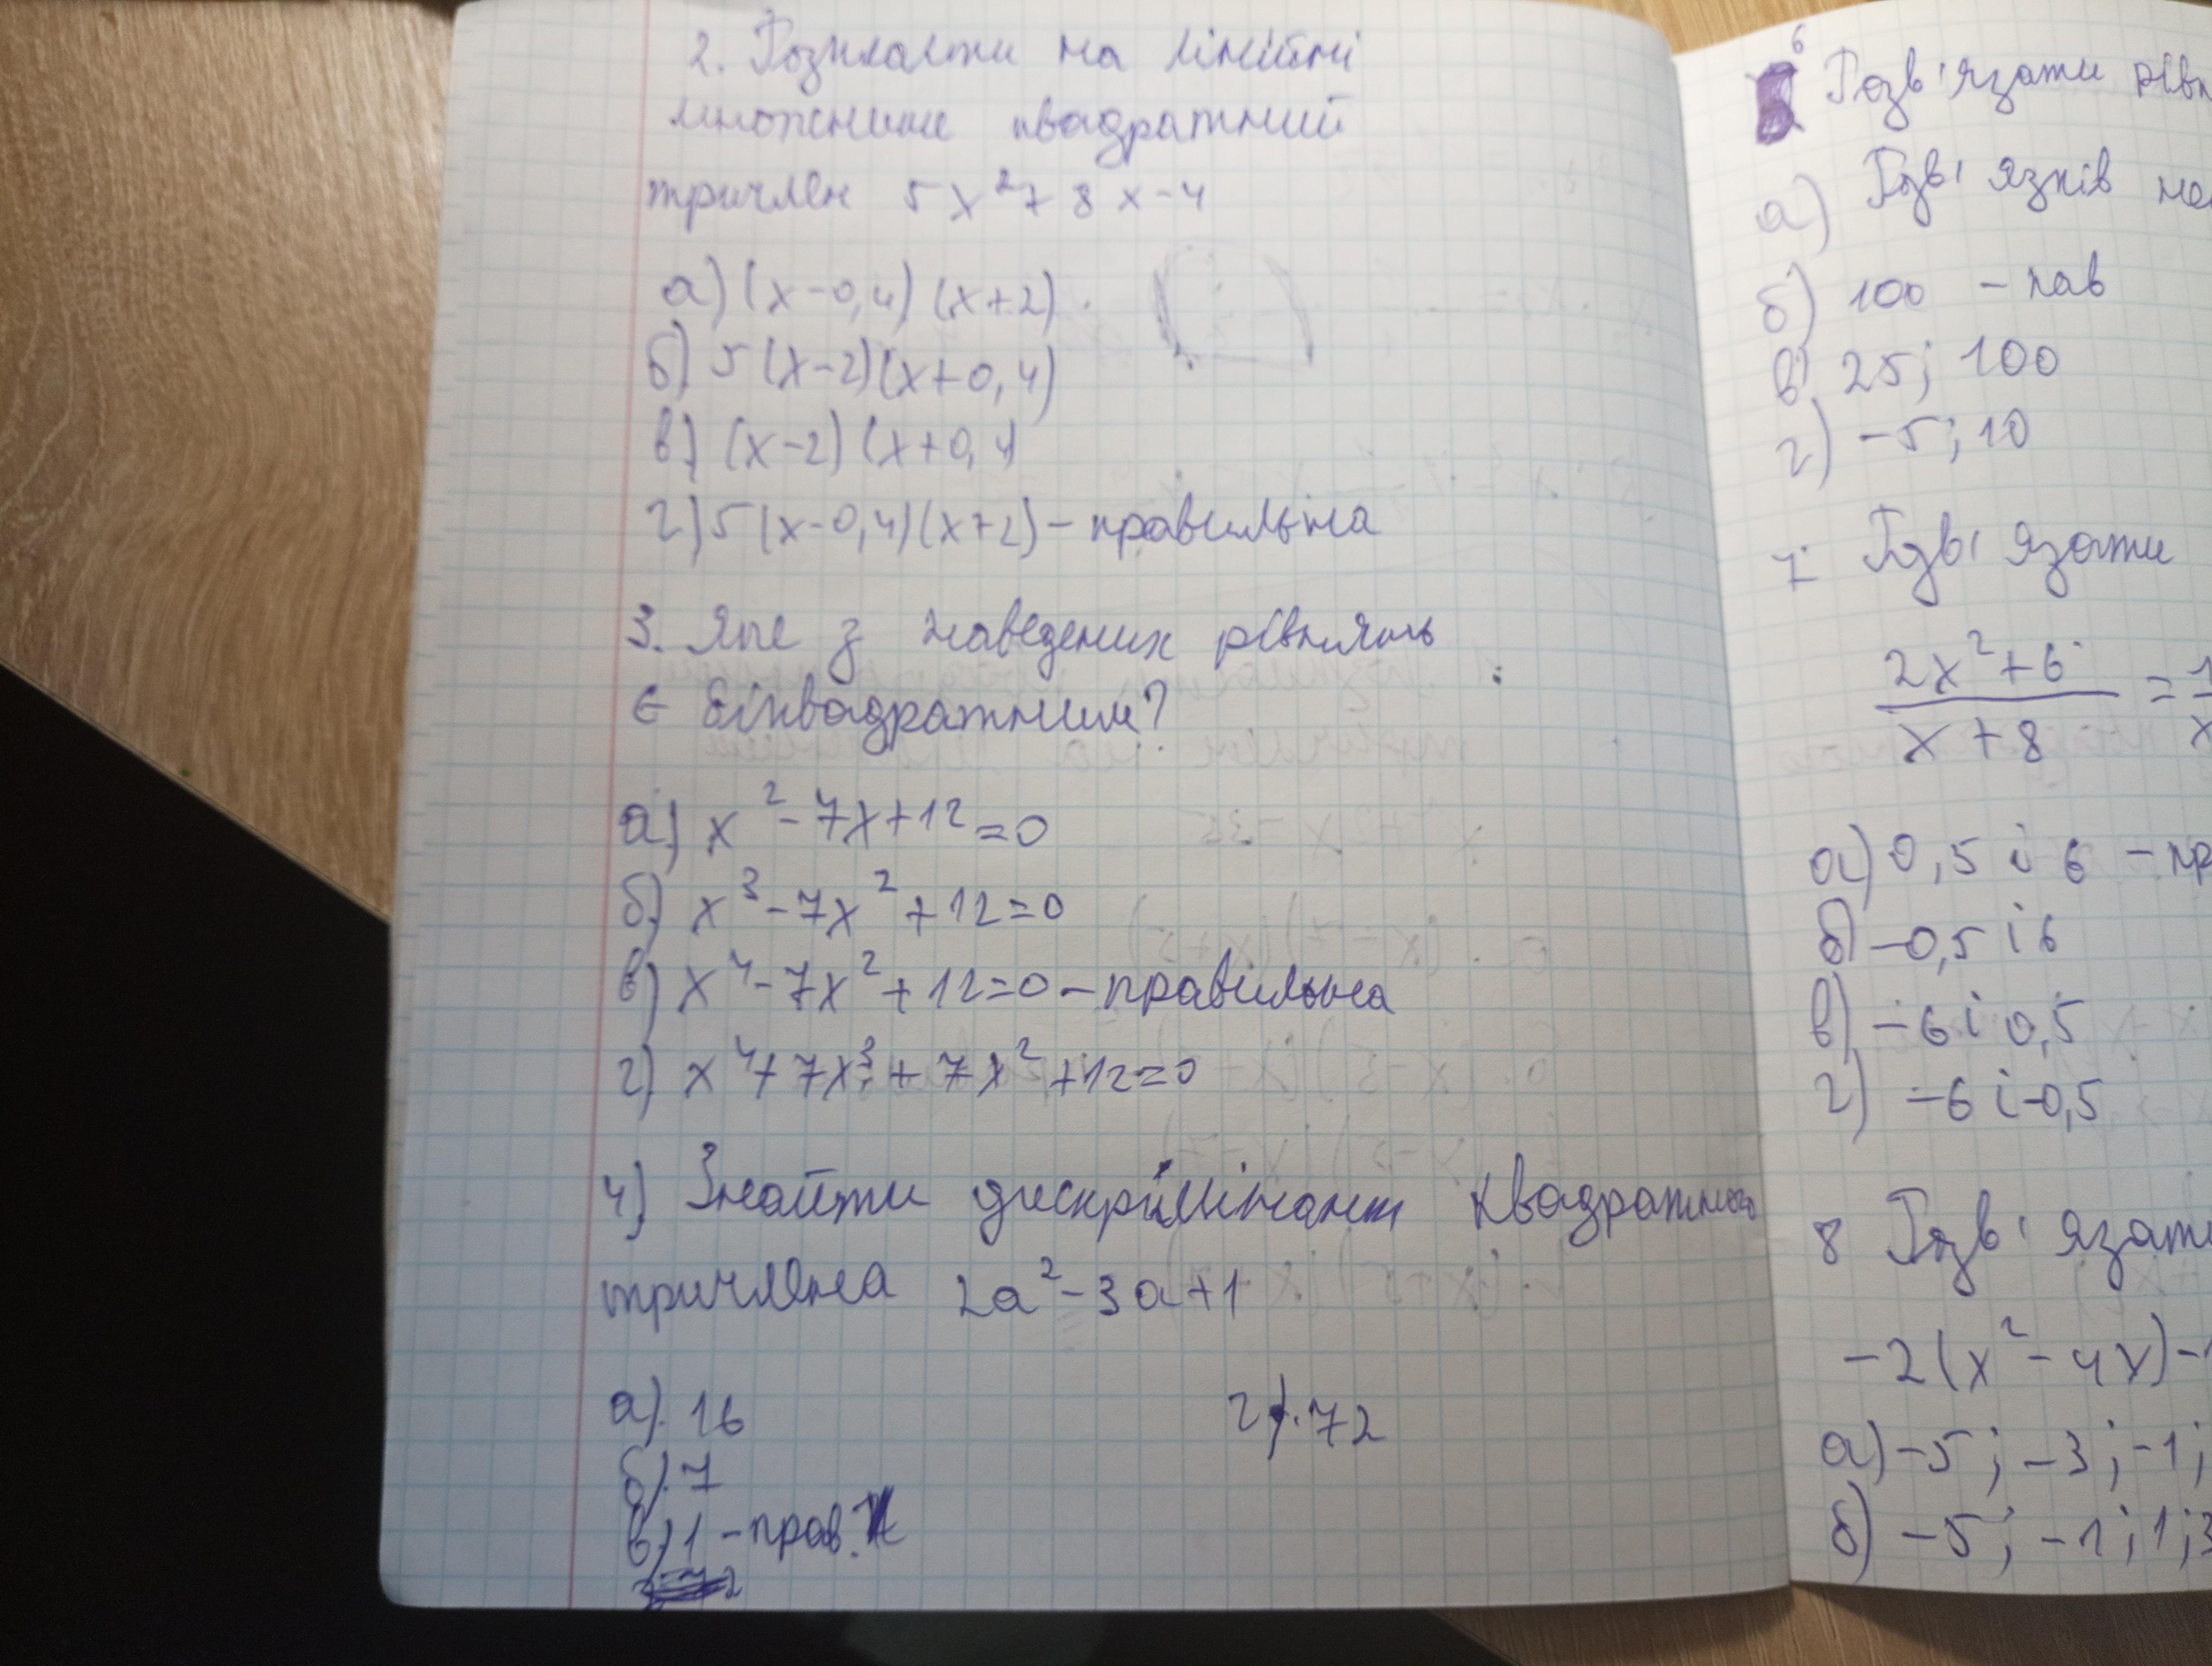 2. Розкласти на лінійні
множники квадратний
тричлен 5x²+8x-4
а) (x-0,4)(x+2)
б) 5(x-2)(x+0,4)
в) (x-2)(x+0,4)
г) 5(x-0,4)(x+2) - правильна
3. Яке з наведених рівнянь
є біквадратним?
а) x²-7x+12=0
б) x³-7x²+12=0
в) x⁴-7x²+12=0 - правильна
г) x⁴+7x³+7x²+12=0
4) Знайти дискримінант квадратного
тричлена 2a²-3a+1
а). 16
г). 72
б). 7
в) 1 - прав.
6 Розв'язати рівн
а) Розв'язків не
б) 100 - пав
в) 25; 100
г) -5; 10
7. Розв'язати
2x²+6
=
x+8
а) 0,5 і 6 - пр
б) -0,5 і 6
в) -6 і 0,5
г) -6 і -0,5
8 Розв'язати
-2(x²-4x)-1
а) -5; -3; -1;
б) -5; -1; 1; 3